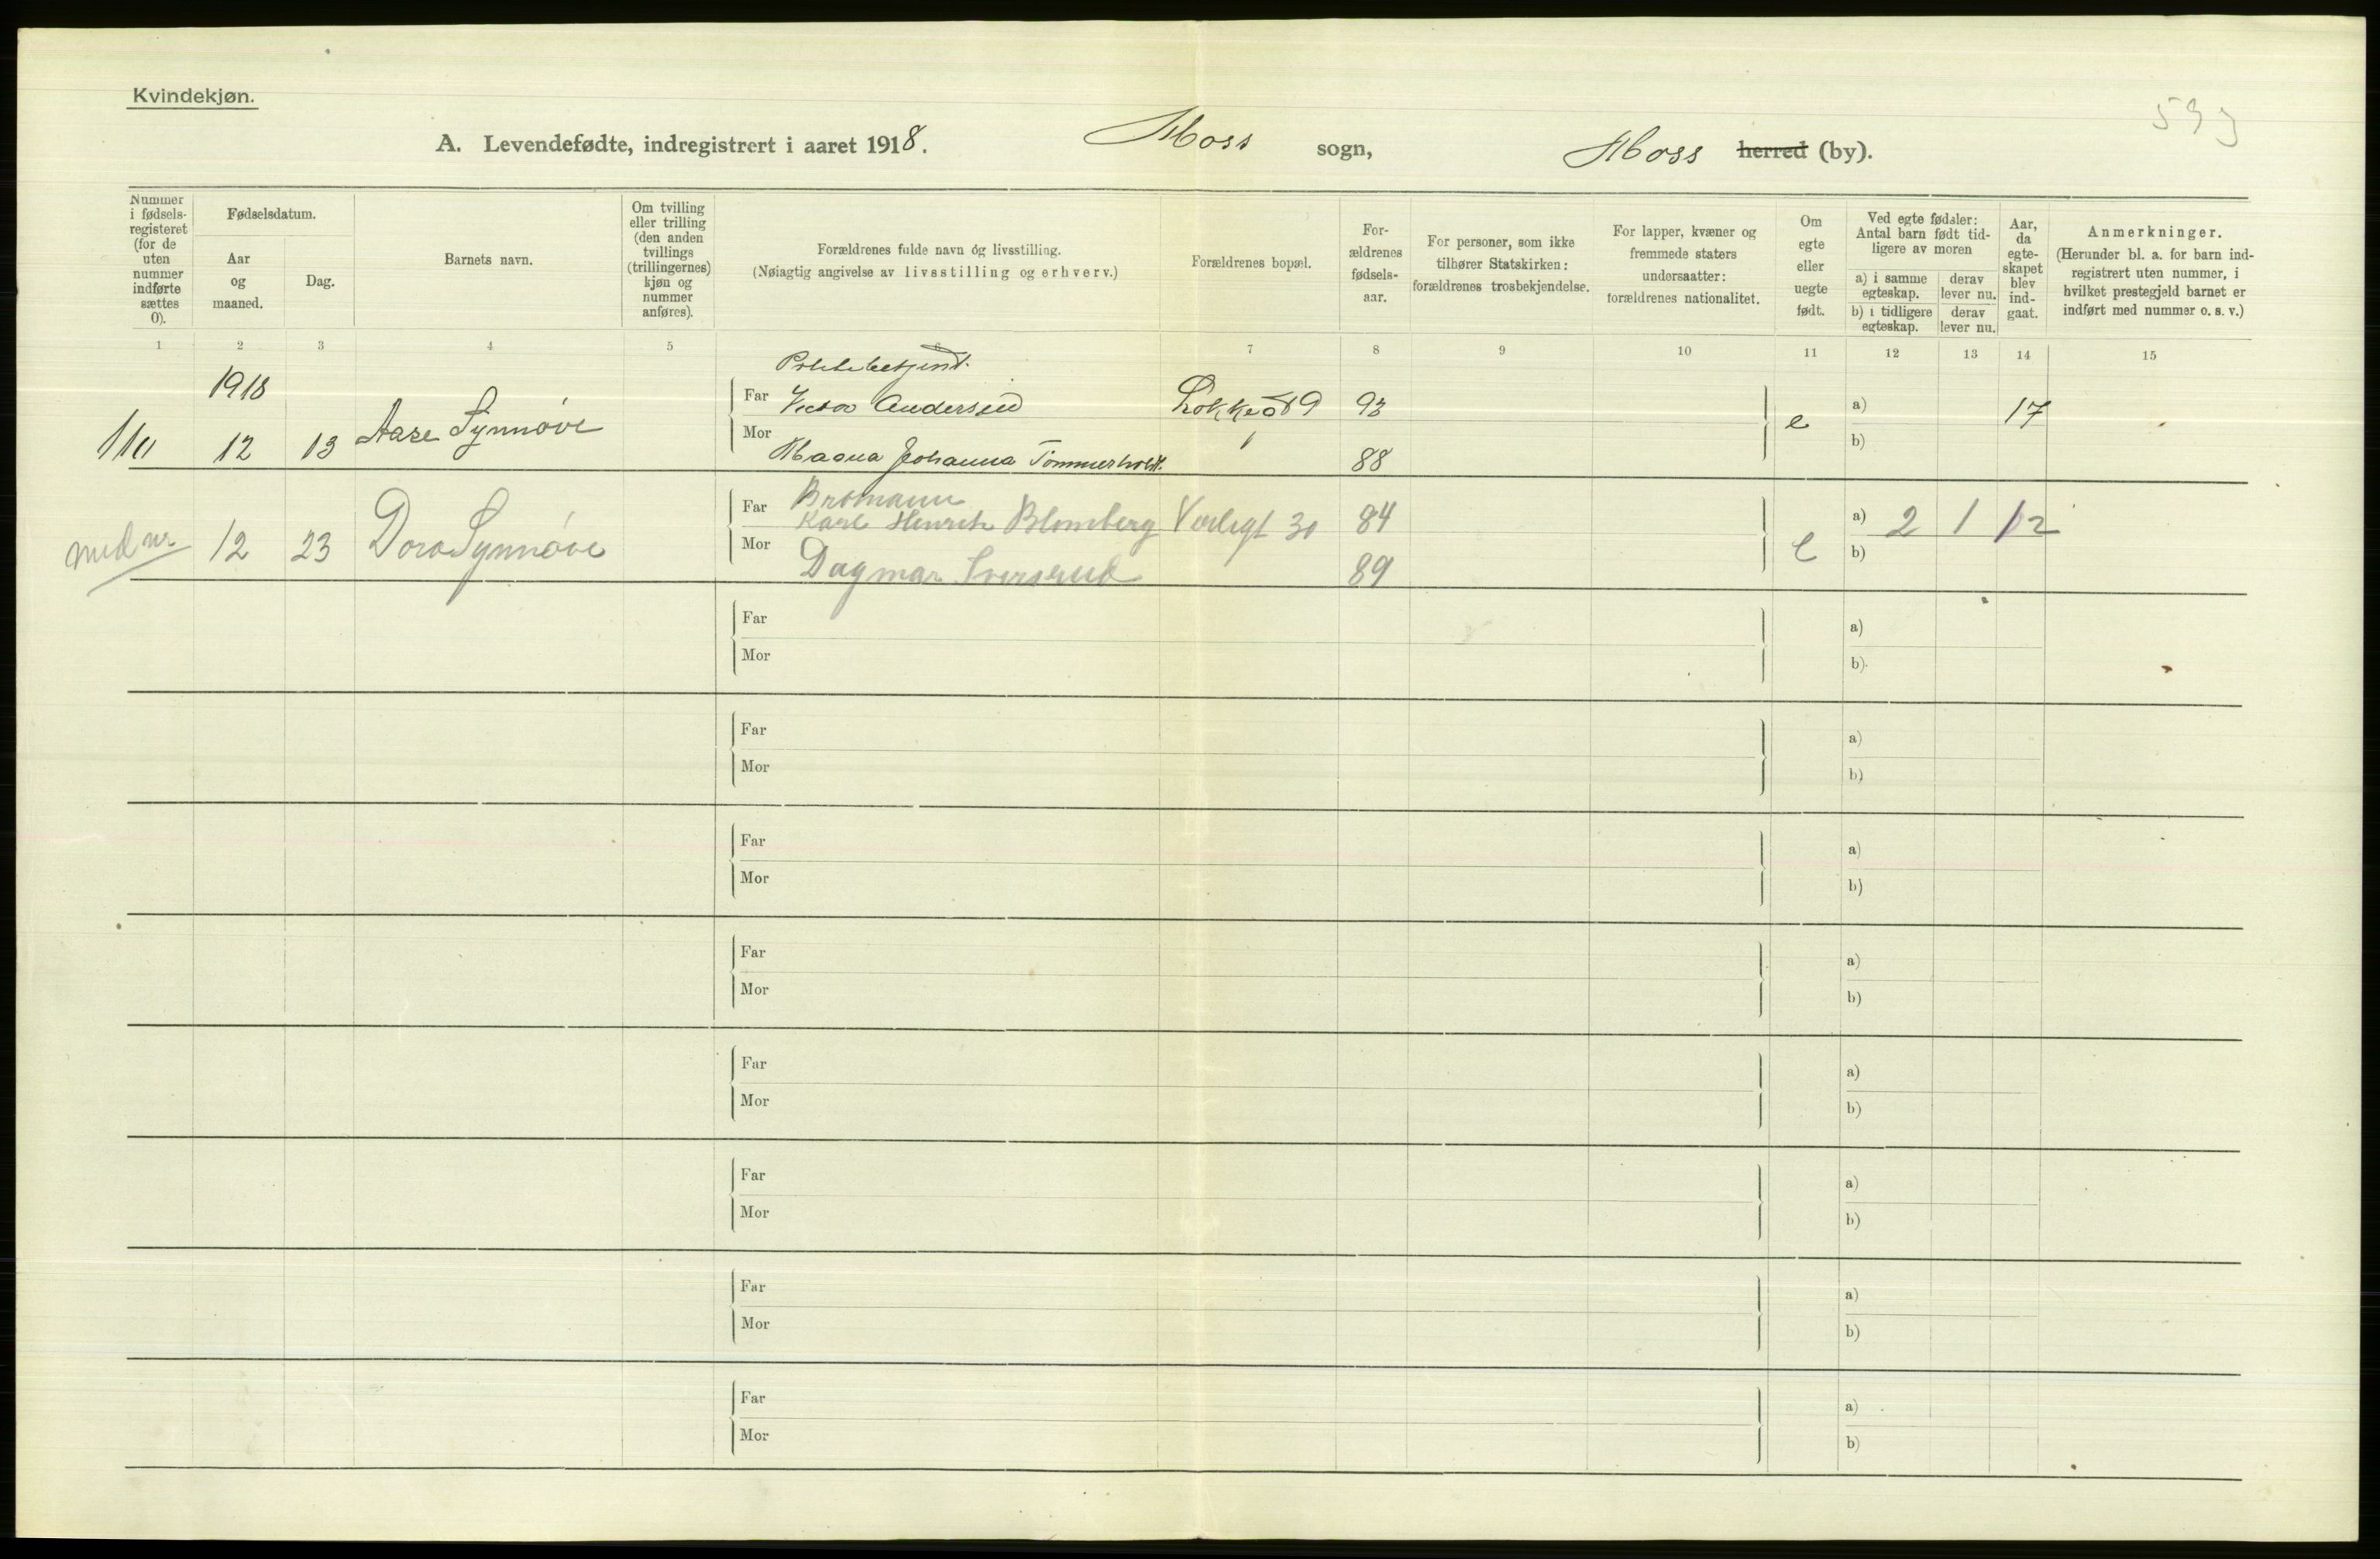 Kvindekjøn.
A. Levendefødte, indregistrert i aaret 1918. Moss sogn, Moss herred (by).
Nummer i fødsels-registeret (for de uten nummer indførte sættes 0).
Fødselsdatum.
Aar og maaned.
Dag.
Barnets navn.
Om tvilling eller trilling (den anden tvillings (trillingernes) kjøn og nummer anføres).
Forældrenes fulde navn og livsstilling.
(Nøiagtig angivelse av livsstilling og erhverv.)
Forældrenes bopæl.
For-ældrenes fødsels-aar.
For personer, som ikke tilhører Statskirken: forældrenes trosbekjendelse.
For lapper, kvæner og fremmede staters undersaatter: forældrenes nationalitet.
Om egte eller uegte født.
Ved egte fødsler: Antal barn født tid-ligere av moren
a) i samme egteskap.
derav lever nu.
b) i tidligere egteskap.
derav lever nu.
Aar, da egte-skapet blev ind-gaat.
Anmerkninger.
(Herunder bl. a. for barn ind-registrert uten nummer, i hvilket prestegjeld barnet er indført med nummer o. s. v.)
1 2 3 4 5 6 7 8 9 10 11 12 13 14 15
1918
12 13 Aase Synnøve
Far Victor Andersen 93 e a) 17
Mor Magna Johanna Tømmerholt 88 b)
12 23 Dora Synnøve
Far Karl Henrik Blomberg Værlegt 30 84 e a) 2 1 12
Mor Dagmar 89 b)
Far a)
Mor b)
Far a)
Mor b)
Far a)
Mor b)
Far a)
Mor b)
Far a)
Mor b)
Far a)
Mor b)
Far a)
Mor b)
Far a)
Mor b)